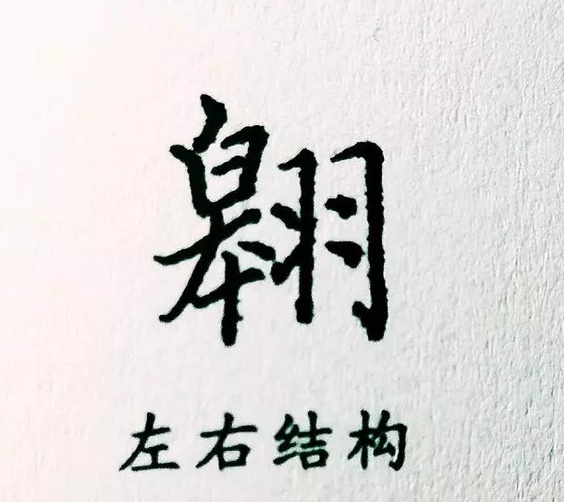 翱
左右结构